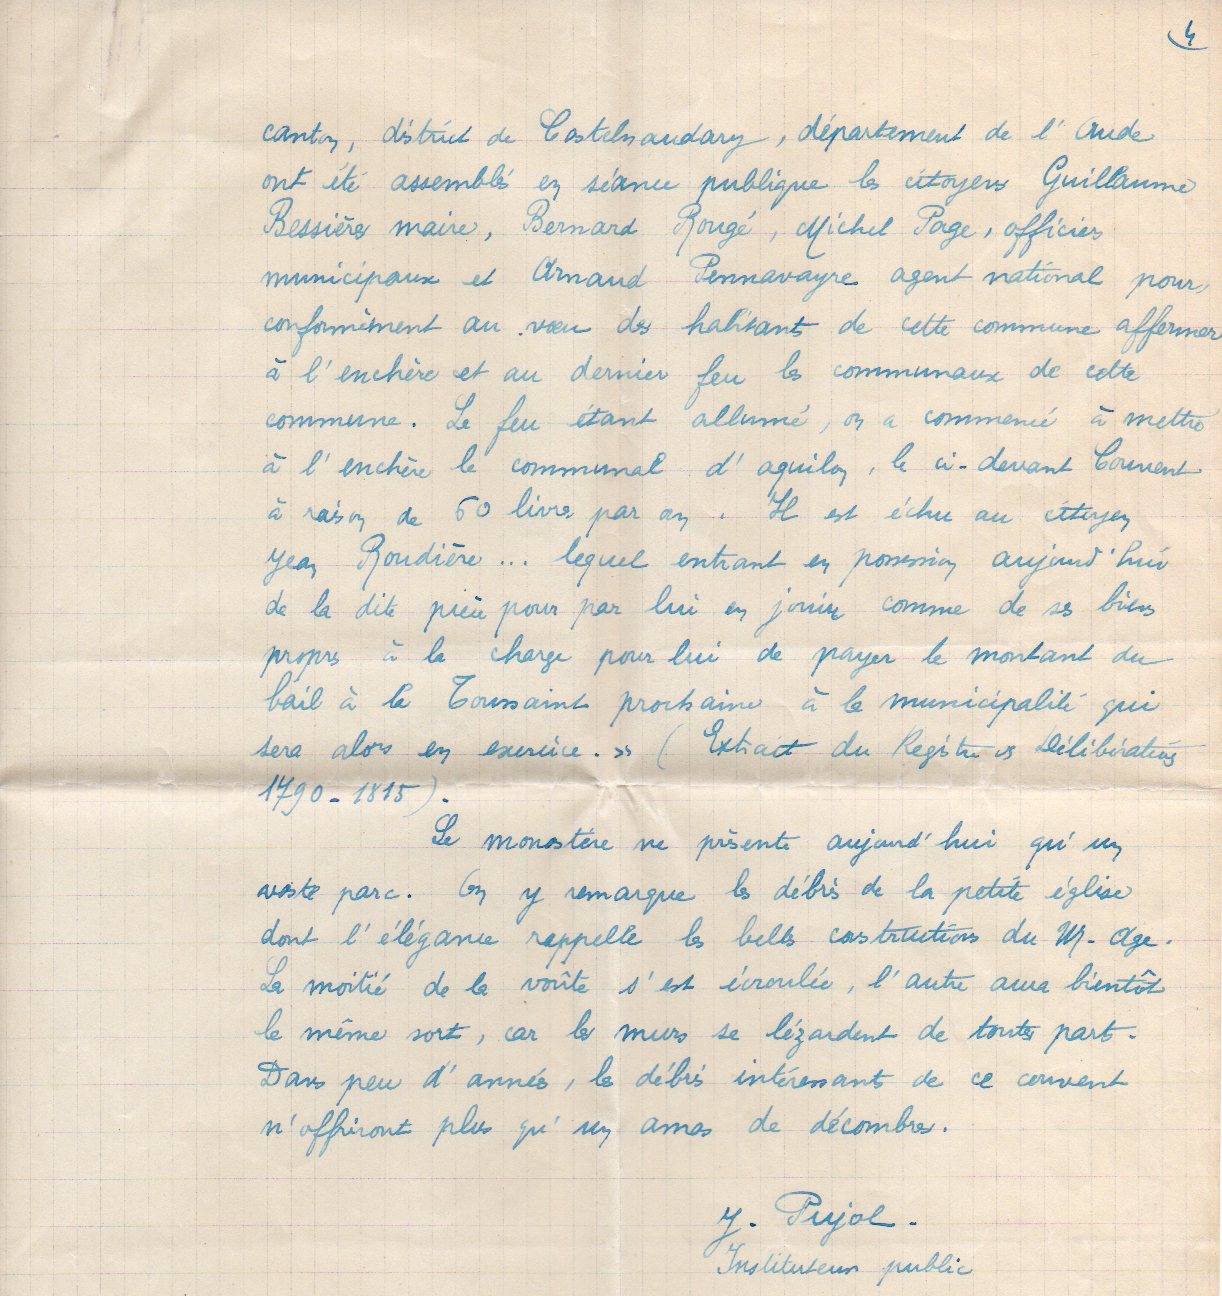 4
canton, district de Castelnaudary, département de l'Aude
ont été assemblés en séance publique les citoyens Guillaume
Bessières maire, Bernard Rougé, Michel Page, officiers
municipaux et Arnaud Pennavayre agent national pour,
conformément au vœu des habitants de cette commune affermer
à l'enchère et au dernier feu les communaux de cette
commune. Le feu étant allumé, on a commencé à mettre
à l'enchère le communal d'aquilon, le ci-devant Couvent
à raison de 60 livres par an. Il est échu au citoyen
Jean Roudière... lequel entrant en possession aujourd'hui
de la dite pièce pour par lui en jouir comme de ses biens
propres à la charge pour lui de payer le montant du
bail à la Toussaint prochaine à la municipalité qui
sera alors en exercice. » (Extrait du Registre des Délibérations
1790-1815).
Le monastère ne présente aujourd'hui qu'un
vaste parc. On y remarque les débris de la petite église
dont l'élégance rappelle les belles constructions du M-Age.
La moitié de la voûte s'est écroulée, l'autre aura bientôt
le même sort, car les murs se lézardent de toutes parts.
Dans peu d'années, les débris intéressants de ce couvent
n'offriront plus qu'un amas de décombres.
J. Pujol.
Instituteur public